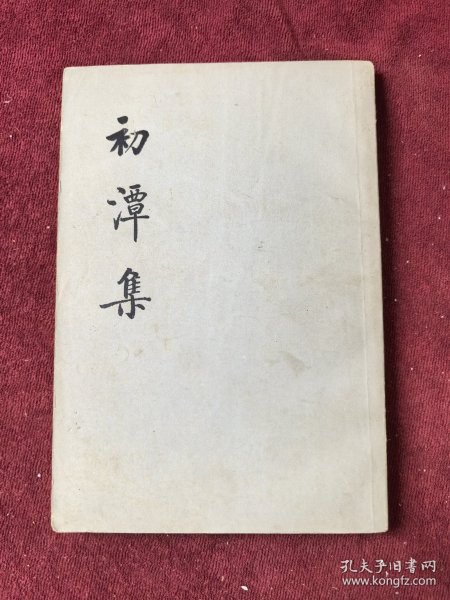 初潭集
孔夫子旧书网
www.kongfz.com